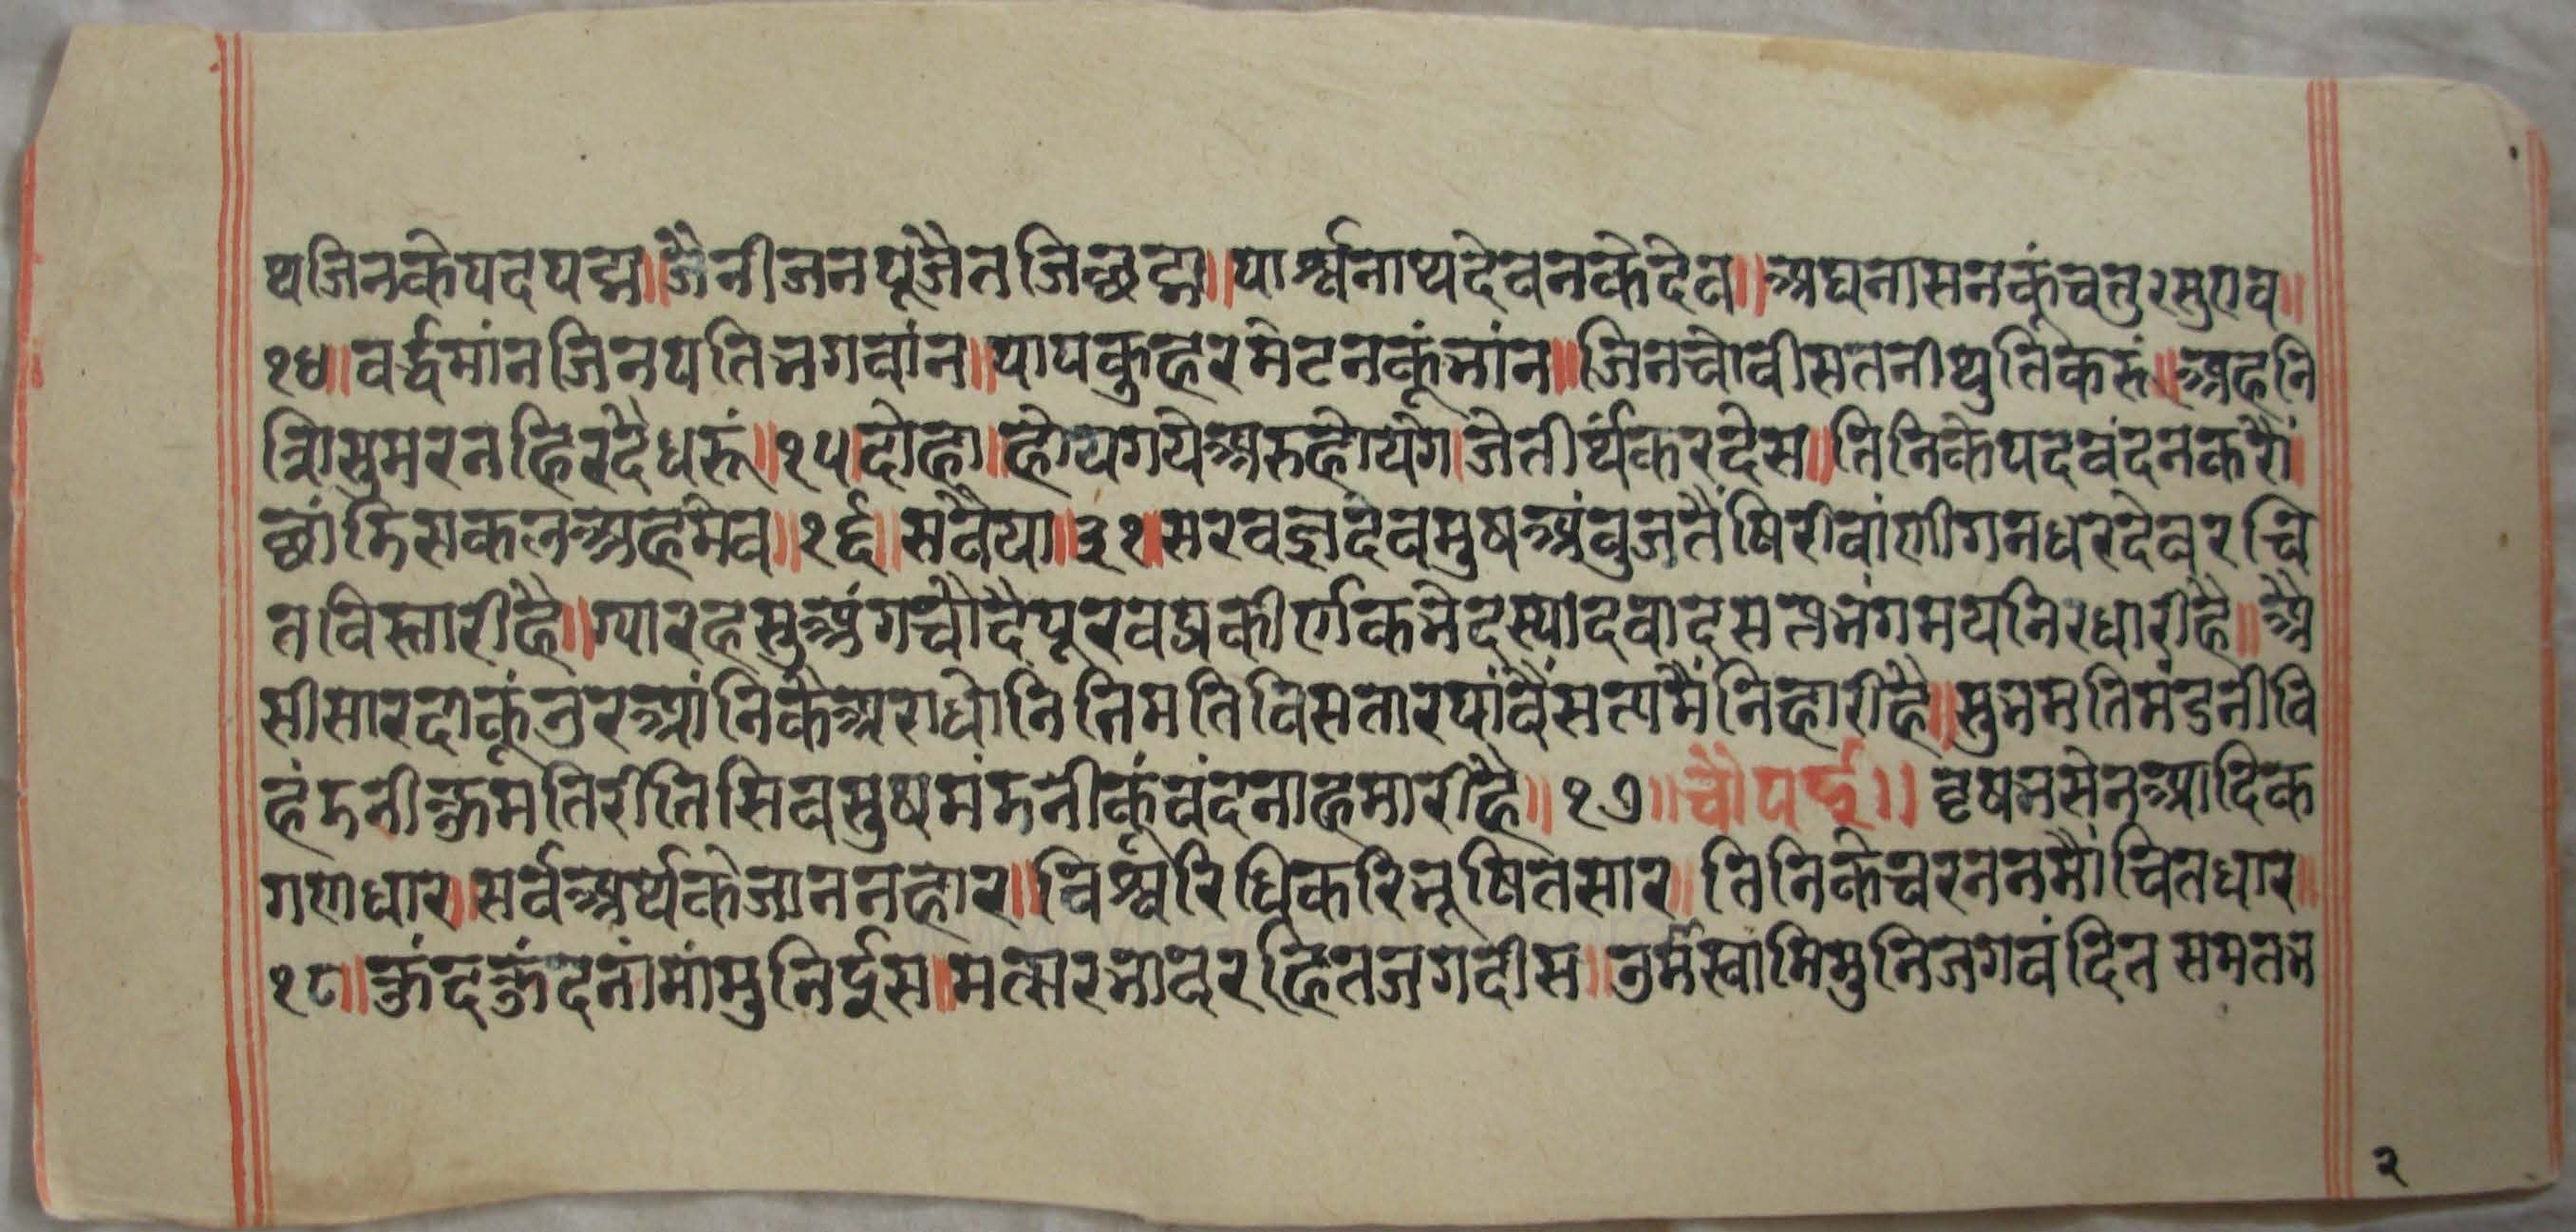 थजिनकेपदपद्म॥जैनीजनपूजैतजिछद्म॥पार्श्वनाथदेवनकेदेव॥अघनासनकूंचतुरसुएव॥
१४॥वर्द्धमांनजिनपतिभगवांन॥पापकुहरमेटनकूंभांन॥जिनचोवीसतनीथुतिकरुं॥अहनि
निसुमरनहिरदैधरूं॥१५॥दोहा॥होयगयेअरुहोयेगे।जेतीर्थंकरदेस॥तिनिकेपदवंदनकरौं॥
छांडिसकलअहमेव॥१६॥सवैया॥३१॥सरवज्ञदेवमुषअंबुजतैंषिरीवांणीगनधरदेवरचि
तविस्तारीहै॥ग्यारहसुअंगचौदैपूरवप्रकीर्णकभेदस्यादवादसप्तभंगमयनिरधारीहै॥अै
सीसारदाकूंनुरआंनिकेअराधोनितिमतिविसतारपांवैंसत्यमैंनिहारीहै॥सुभमतिमंडनीवि
हंडनीकुमतिरीतिसिवसुषमंडनीकूंवंदनाहमारीहै॥१७॥चौपई॥वृषभसेनआदिक
गणधार॥सर्वअर्थकेजाननहार॥विश्वरिधिकरिभूषितसार॥तिनिकेचरननमौंचितधार॥
१८॥कुंदकुंदनांमांमुनिईस॥मत्सरभावरहितजगदीस॥नुमैंस्वामिमुनिजगवंदित समतभ
२